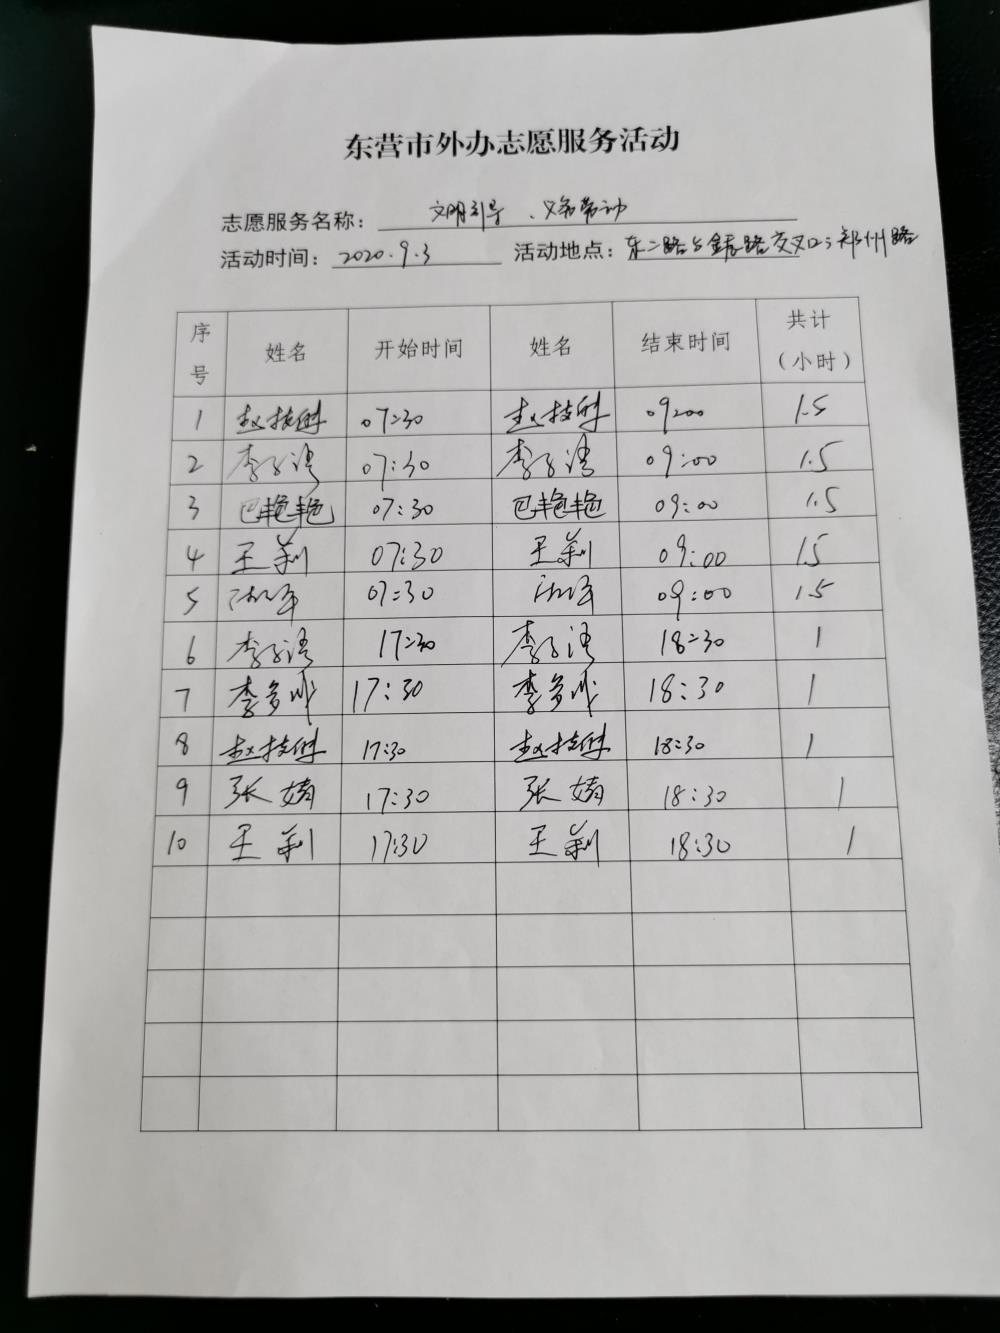 东营市外办志愿服务活动
志愿服务名称： 文明引导 、义务劳动
活动时间： 2020.9.3 活动地点： 东二路与 路交叉口；郑州路
序号 姓名 开始时间 姓名 结束时间 共计（小时）
1 赵技 07:30 赵技 09:00 1.5
2 李子涛 07:30 李子涛 09:00 1.5
3 巴艳艳 07:30 巴艳艳 09:00 1.5
4 王莉 07:30 王莉 09:00 1.5
5 07:30 09:00 1.5
6 李子涛 17:30 李子涛 18:30 1
7 李 17:30 李 18:30 1
8 赵技 17:30 赵技 18:30 1
9 张婧 17:30 张婧 18:30 1
10 王莉 17:30 王莉 18:30 1